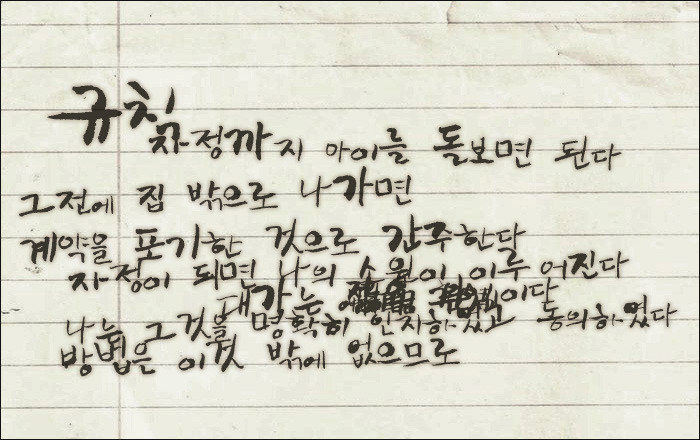 규칙
자정까지 아이를 돌보면 된다
그전에 집 밖으로 나가면
계약을 포기한 것으로 간주한다
자정이 되면 나의 소원이 이루어진다
대가는 이다
나는 그것을 명확히 인지하였고 동의하였다
방법은 이것 밖에 없으므로